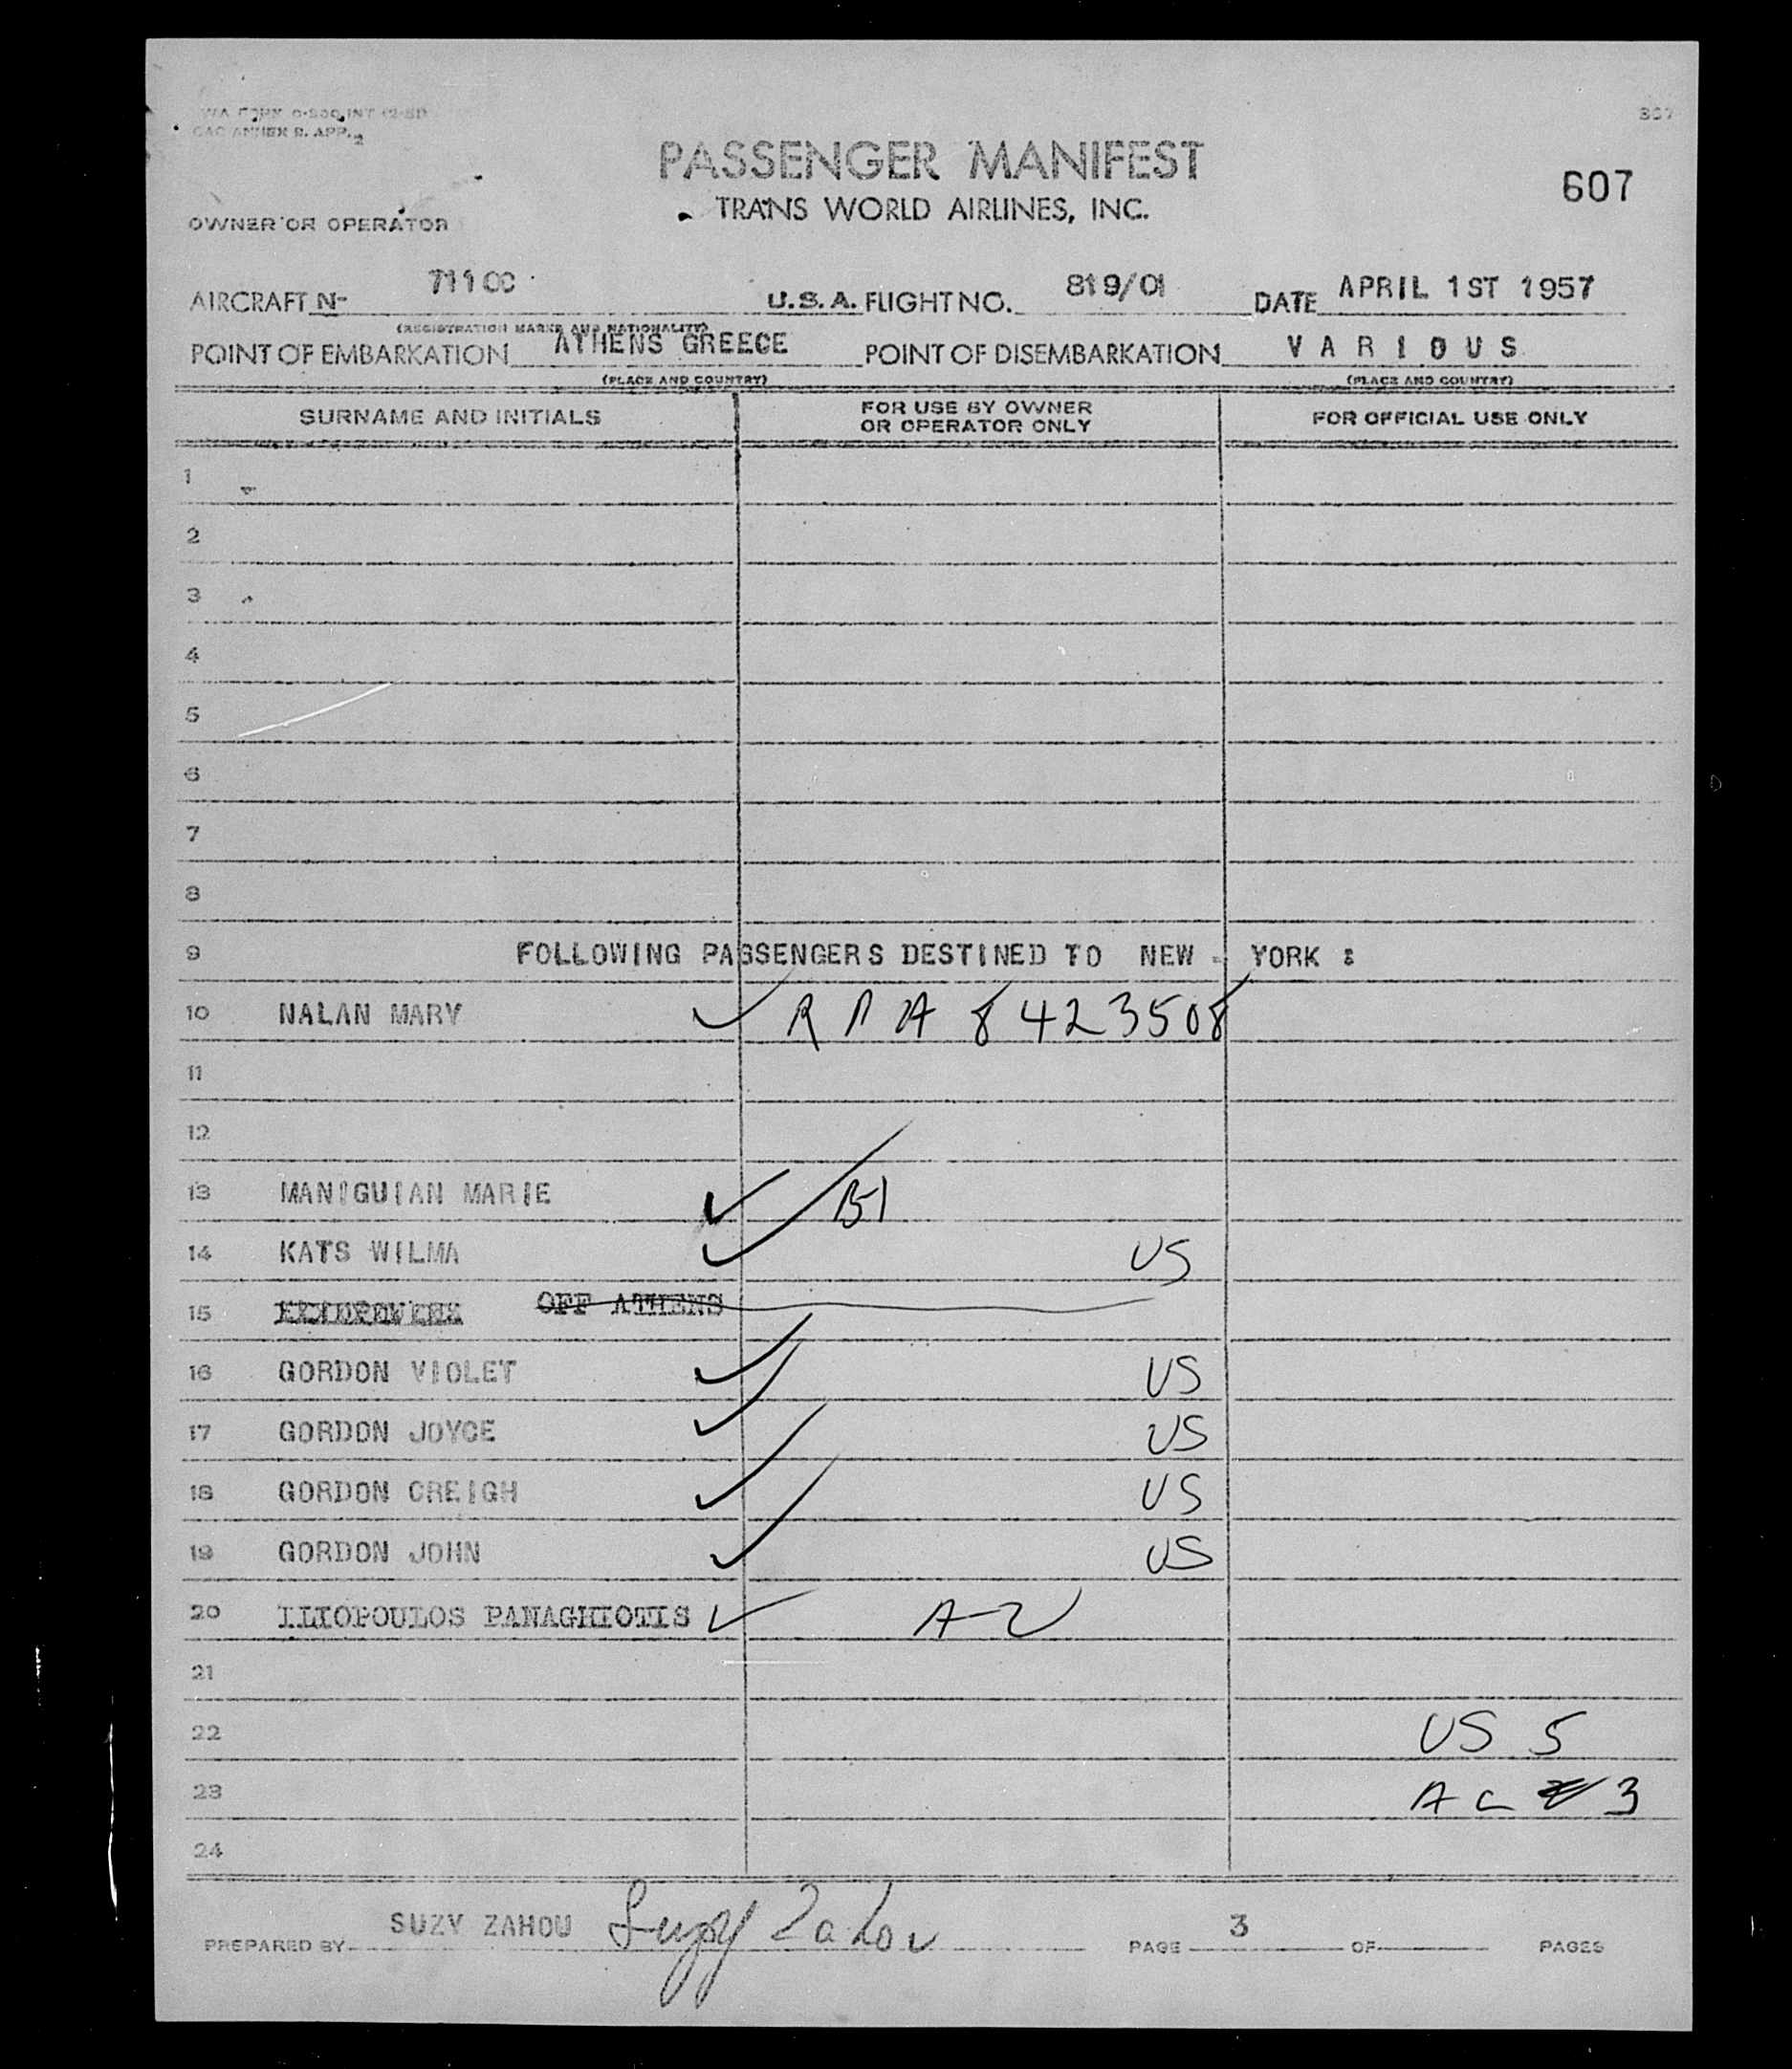 OWNER OR OPERATOR
PASSENGER MANIFEST
TRANS WORLD AIRLINES, INC.
607
AIRCRAFT N- 7110C U.S.A. FLIGHT NO. 819/01 DATE APRIL 1ST 1957
(REGISTRATION MARKS AND NATIONALITY)
POINT OF EMBARKATION ATHENS GREECE POINT OF DISEMBARKATION VARIOUS
(PLACE AND COUNTRY) (PLACE AND COUNTRY)
SURNAME AND INITIALS FOR USE BY OWNER OR OPERATOR ONLY FOR OFFICIAL USE ONLY
1
2
3
4
5
6
7
8
9 FOLLOWING PASSENGERS DESTINED TO NEW - YORK :
10 NALAN MARY ✓ 8423508
11
12
13 MANIGUIAN MARIE ✓ B1
14 KATS WILMA ✓ US
15 OFF ATHENS
16 GORDON VIOLET ✓ US
17 GORDON JOYCE ✓ US
18 GORDON CREIGH ✓ US
19 GORDON JOHN ✓ US
20 ILIOPOULOS PANAGHIOTIS ✓ A-2
21
22 US 5
23 AL 3
24
PREPARED BY SUZY ZAHOU Suzy Zahou PAGE 3 OF PAGES